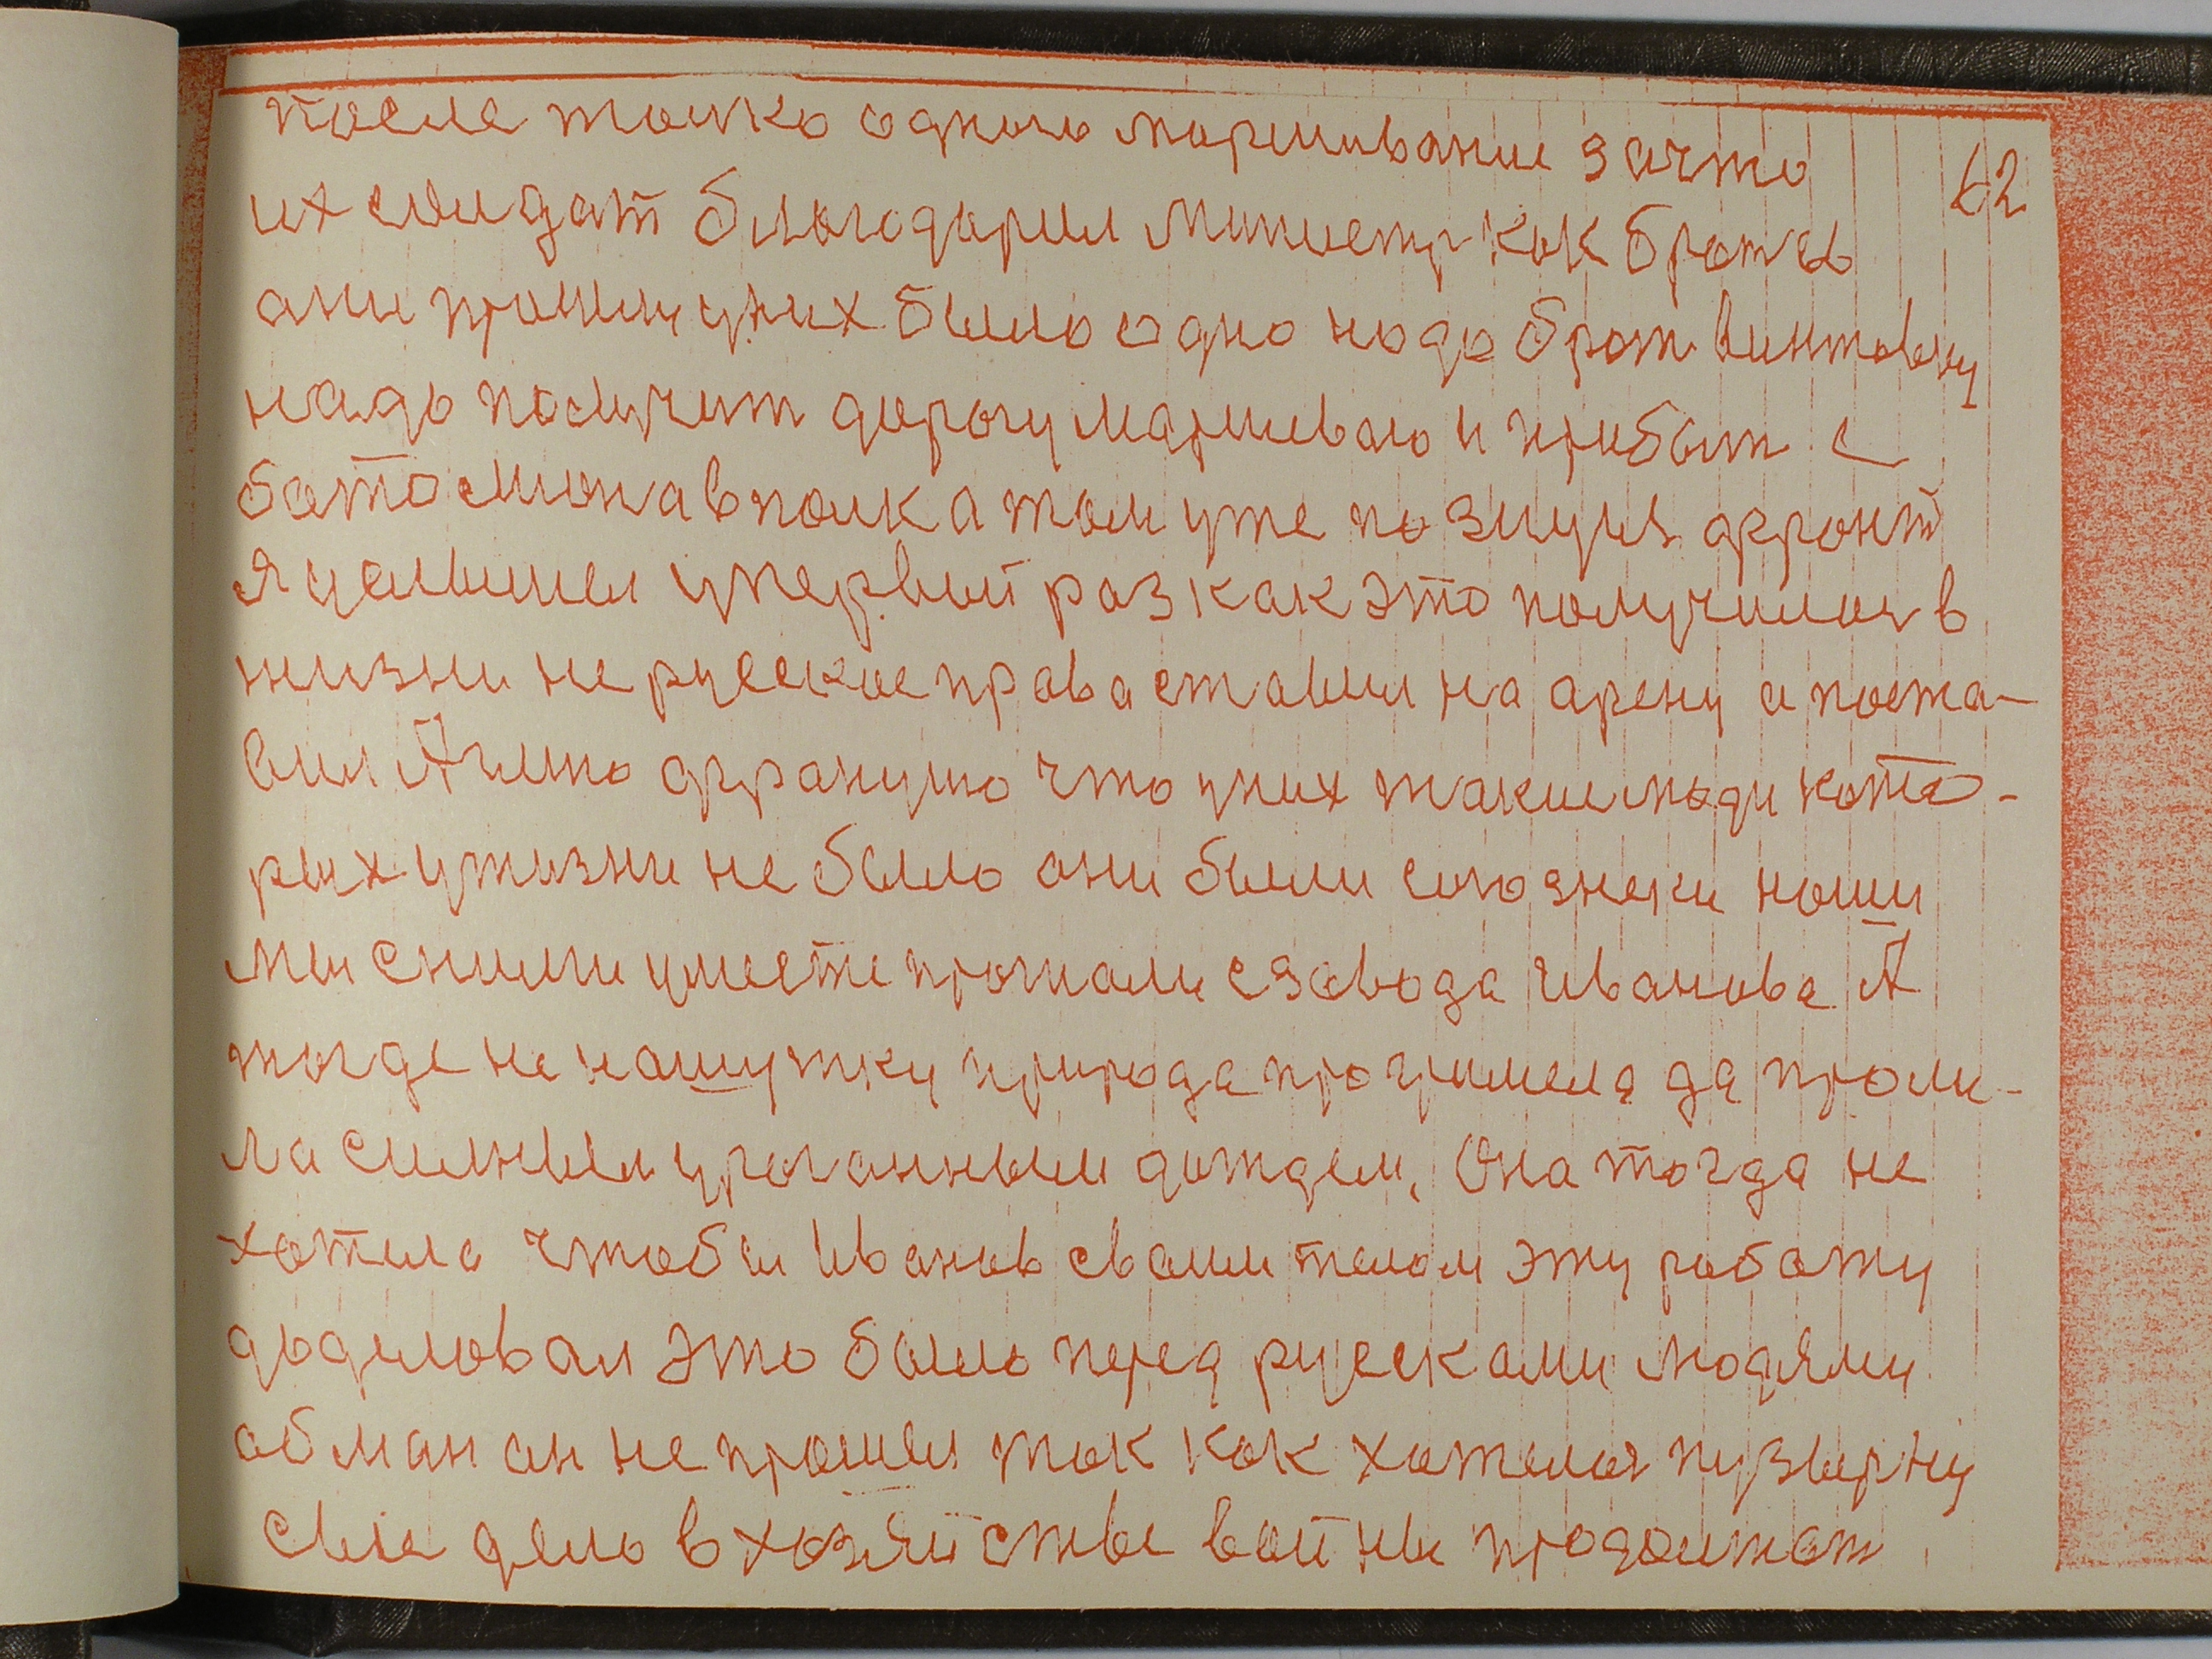 после толко одного маршивание зачто
62
их солдат благодарил министр как братьев
ани прошли уних было одно надо брат винтовку
надо получит дорогу маршеваю и прибыт с
батолиона в полк а там уже позиция фронт
я услышел упервый раз как это получилос в
жизни не русское права ставил на арену а поста-
вил Англо францию что уних такие люди кото-
рых ужизни не было они были союзнеки наши
мы сними уместе прогнали с завода Иванова А
тогда не нашутку природа прогримела да проли-
ла силным ураганным дождем, Она тогда не
хотила чтобы Иванов своим телом эту работу
доделовал это было перед руссками людями
обман он не прошел так как хателоя пузырну
свае дело в хозяйстве войны продолжат